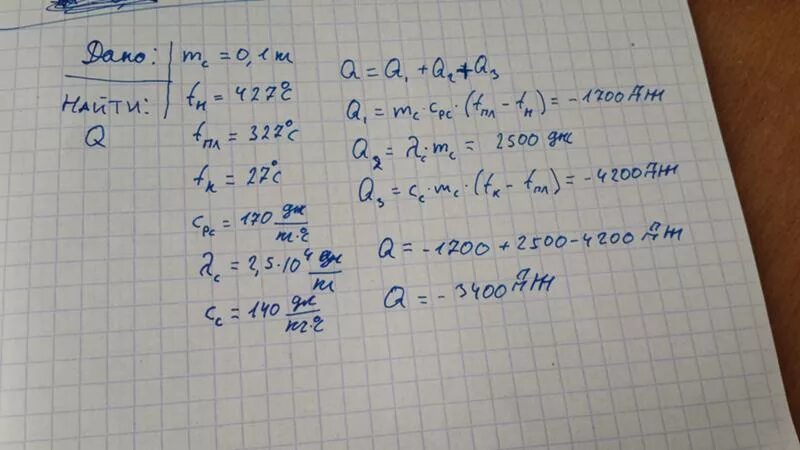 Дано:
НАЙТИ:
Q
m_c = 0,1 кг
t_н = 427°C
t_пл = 327°C
t_к = 27°C
c_рс = 170 дж/кг·°C
λ_c = 2,5·10⁴ дж/кг
c_c = 140 дж/кг·°C
Q = Q₁ + Q₂ + Q₃
Q₁ = m_c · c_рс · (t_пл − t_н) = −1700 Дж
Q₂ = λ_c · m_c = 2500 дж
Q₃ = c_c · m_c · (t_к − t_пл) = −4200 Дж
Q = −1700 + 2500 − 4200 Дж
Q = −3400 Дж